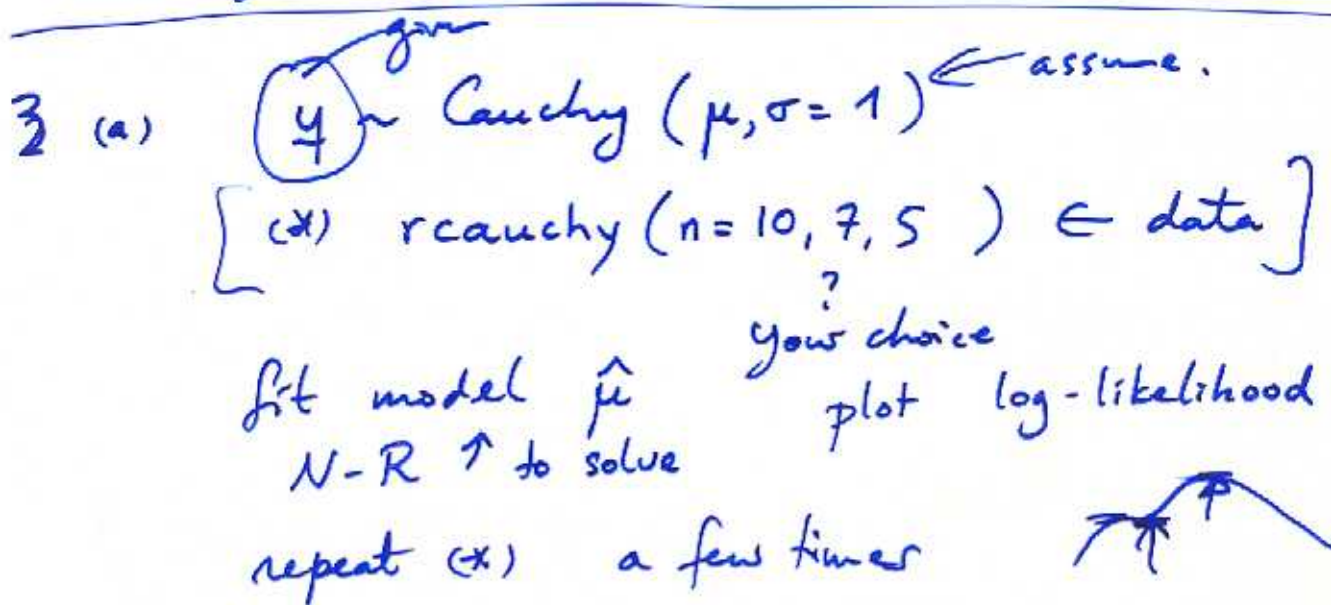 given
3 (a) y ~ Cauchy (μ, σ = 1) ← assume.
[ (*) rcauchy (n = 10, 7, 5 ) ← data ]
?
your choice
fit model μ̂ plot log-likelihood
N-R ↑ to solve
repeat (*) a few times